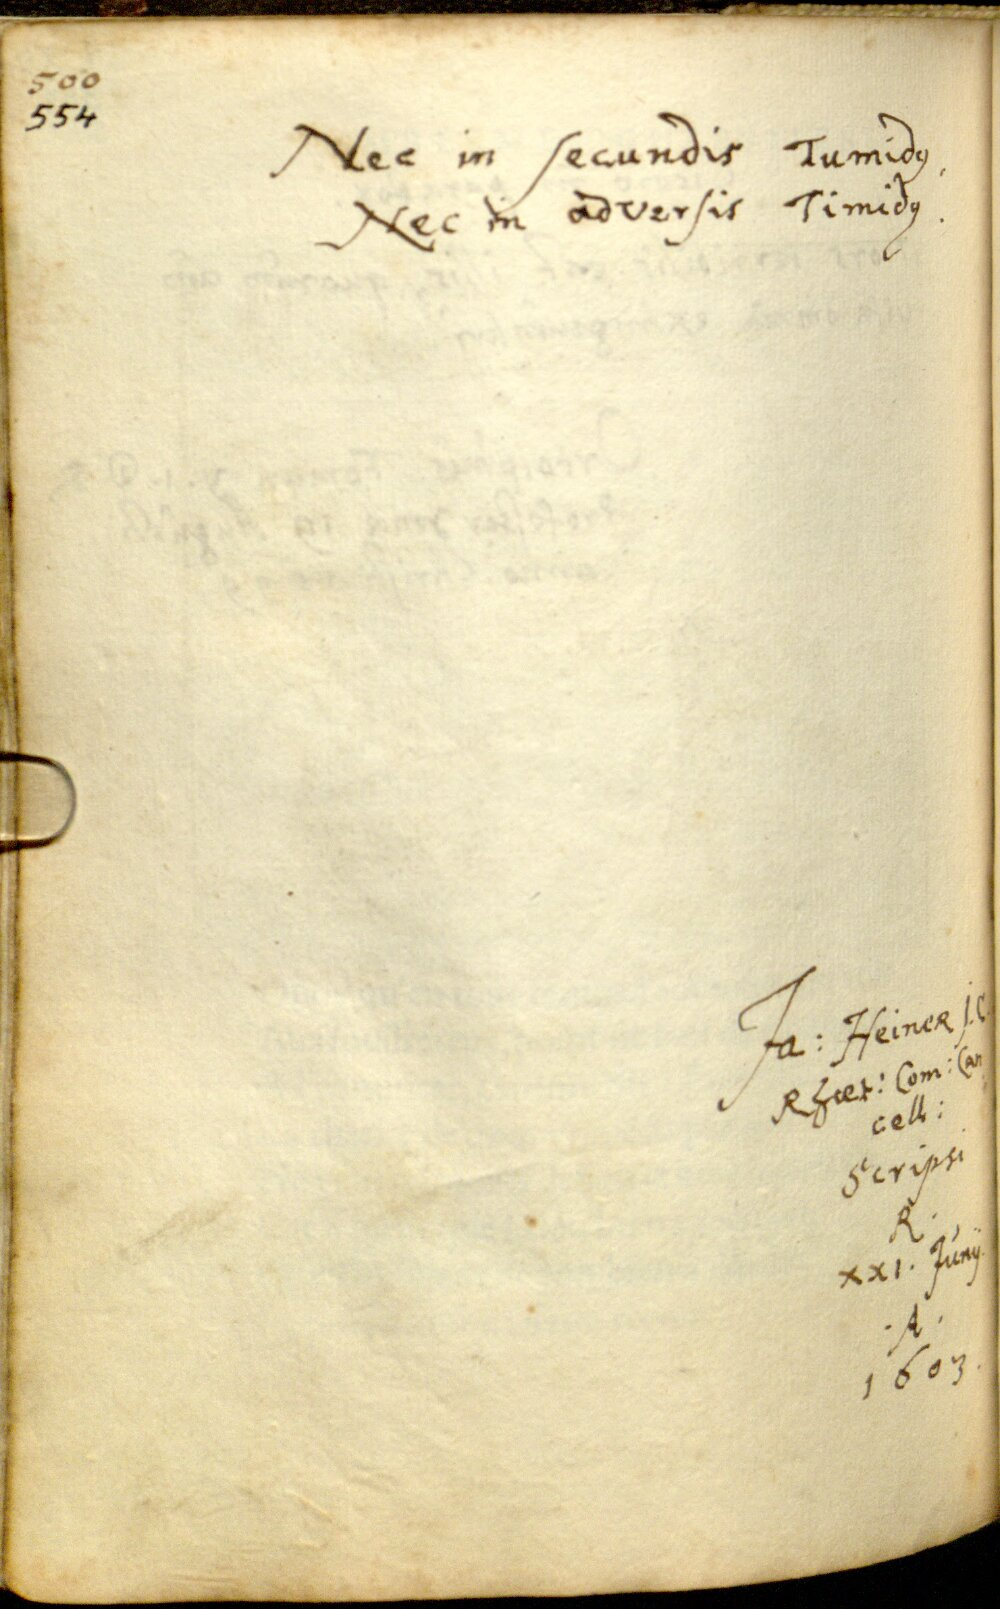 500
554
Nec in secundis Tumidꝯ,
Nec in adversis Timidꝯ.
Ja: Heiner J.C.
Com: Can
cell:
Scripsi
R.
XXI. Junij.
.A.
1603.